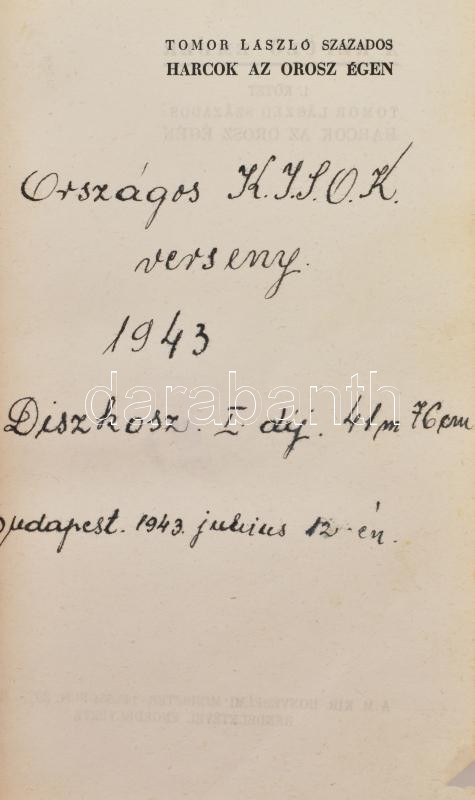 TOMOR LÁSZLÓ SZÁZADOS
HARCOK AZ OROSZ ÉGEN
Országos K.I.S.O.K.
verseny.
1943
darabanth
Diszkosz. I. díj. 41m 76cm
Budapest. 1943. július 12-én.